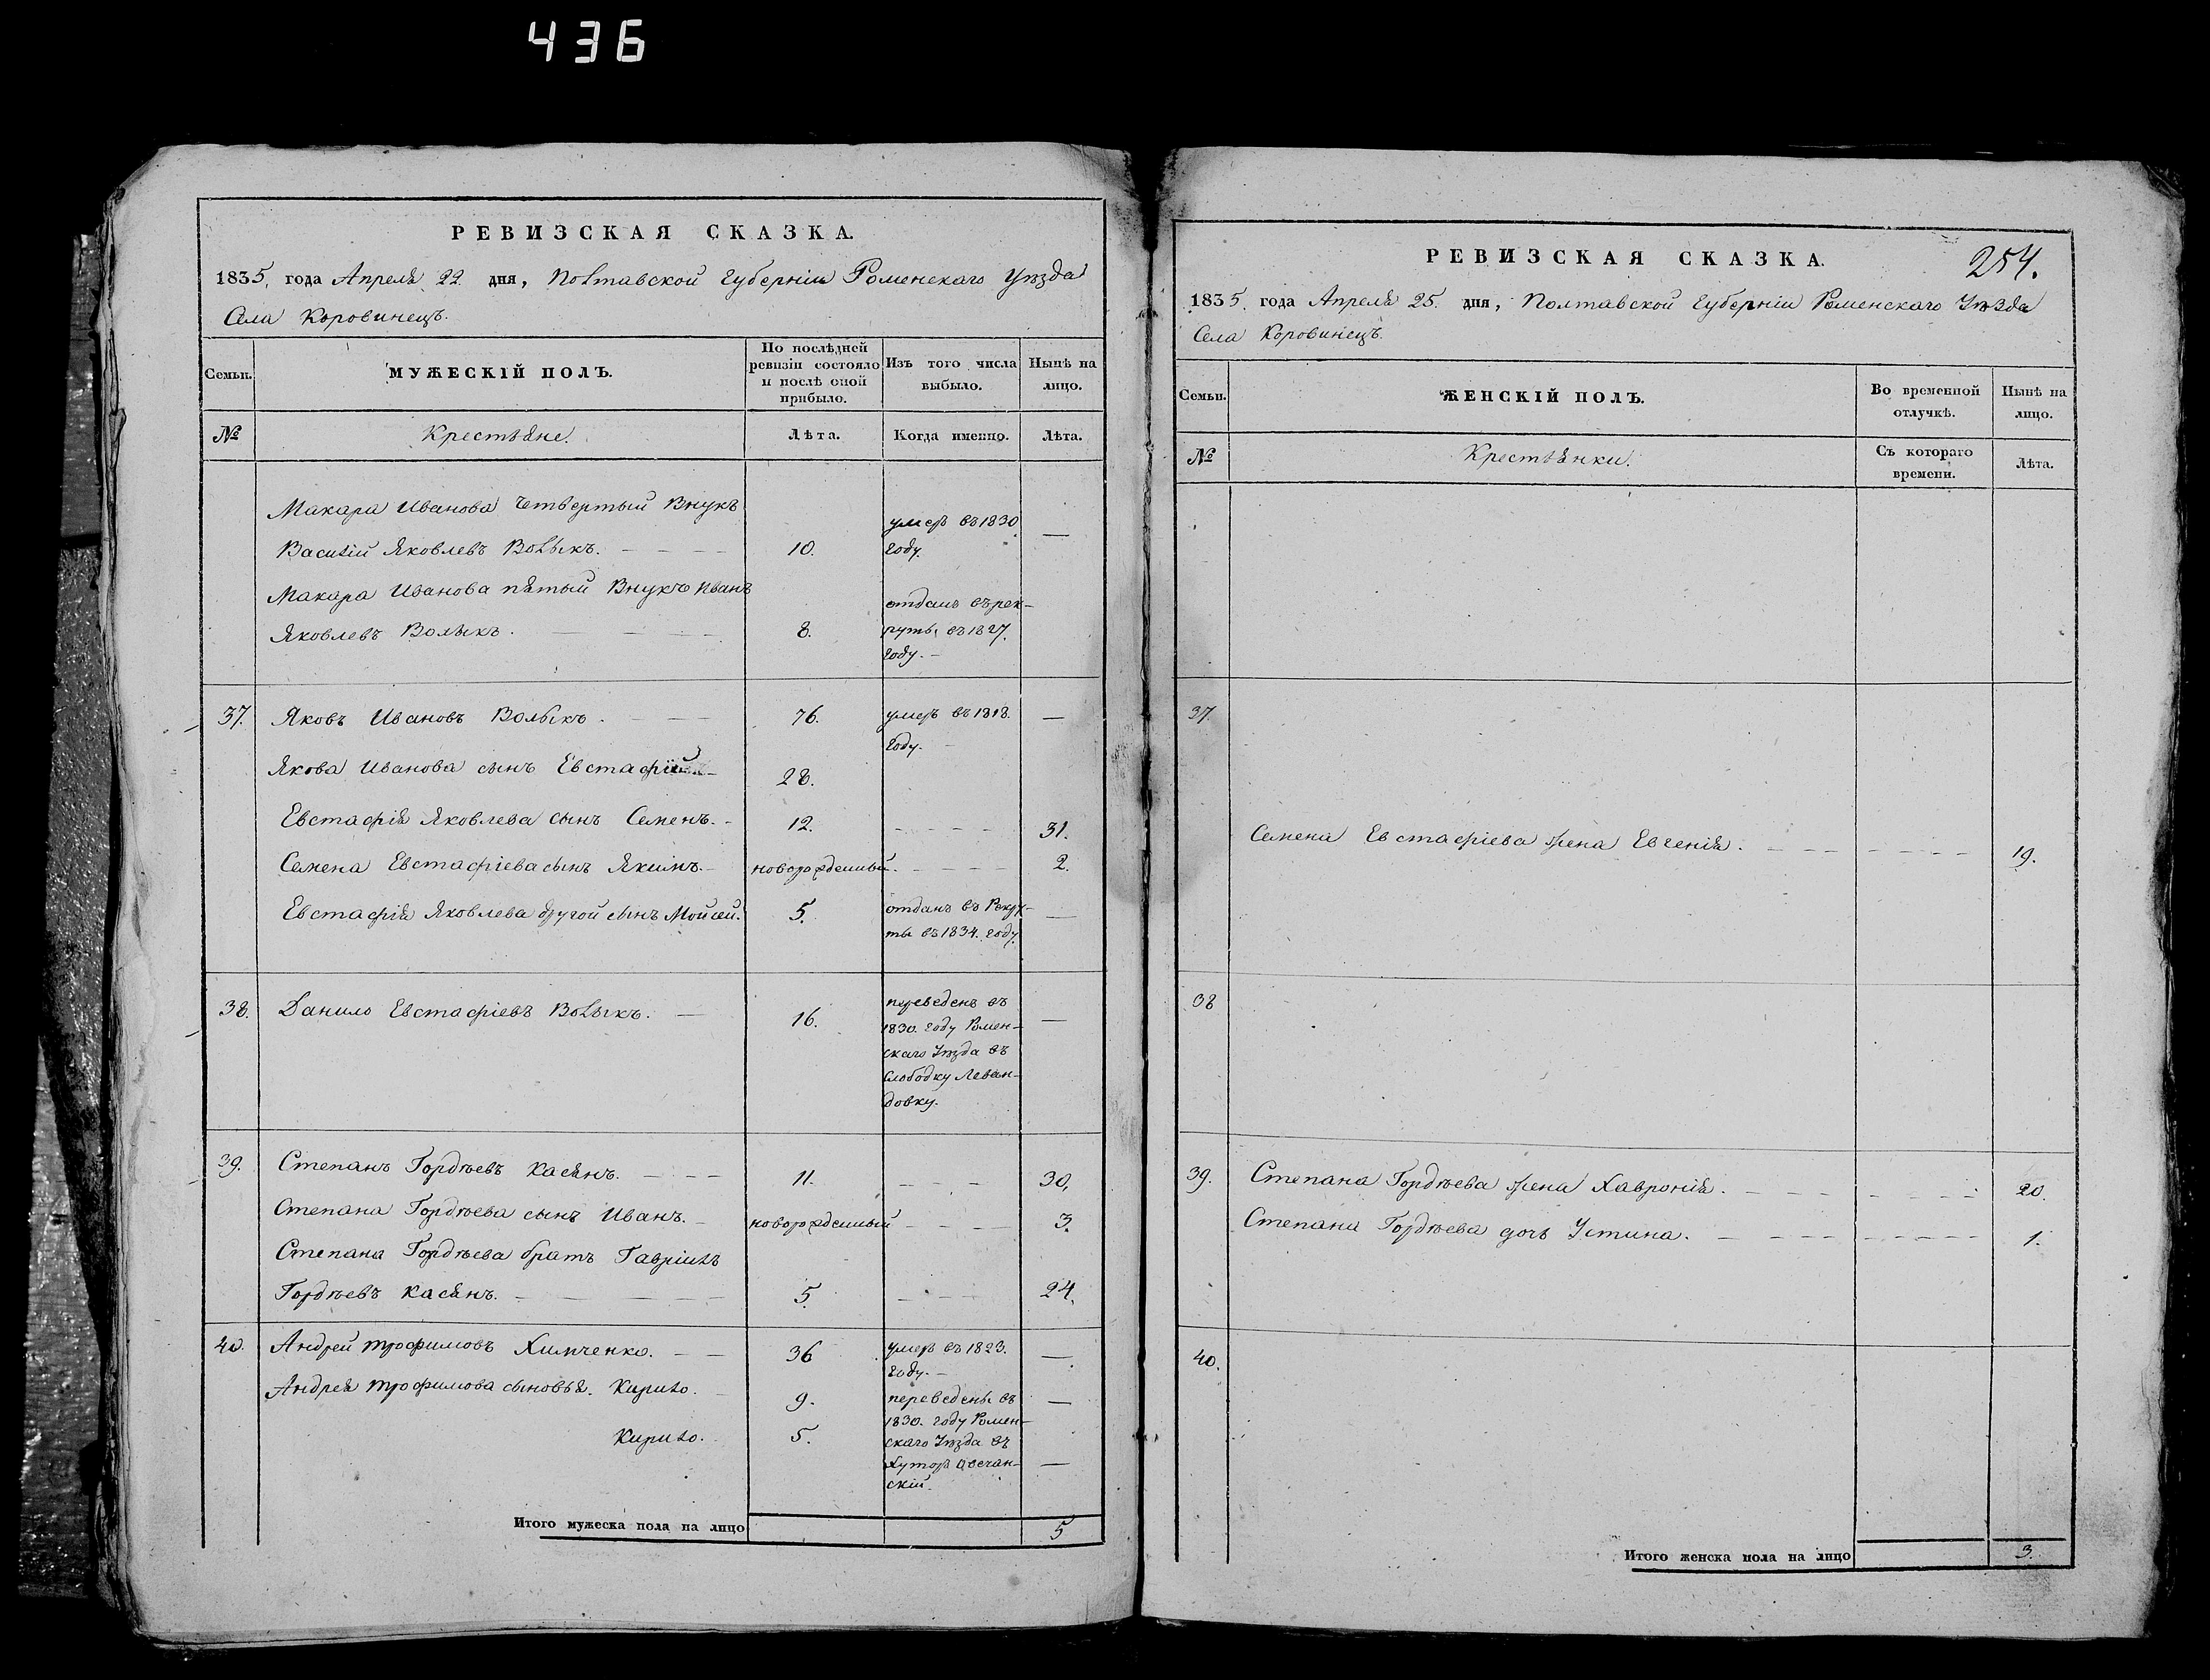 436
РЕВИЗСКАЯ СКАЗКА.
1835, года Апреля 22 дня, Полтавской Губерніи Роменскаго Уѣзда
Села Коровинецъ.
Семьи.
МУЖЕСКІЙ ПОЛЪ.
По послѣдней
ревизіи состояло
и послѣ оной
прибыло.
Изъ того числа
выбыло.
Нынѣ на
лицо.
№
Крестьяне.
Лѣта.
Когда именно.
Лѣта.
Макара Иванова Четвертый Внукъ
Василій Яковлевъ Волыкъ. — 10. умеръ въ 1830
году. —
Макара Иванова пятый Внукъ Иванъ
Яковлевъ Волыкъ. — 8. отданъ въ рек-
руты въ 1827.
году. —
37. Яковъ Ивановъ Волыкъ. — 76. умеръ въ 1818. —
году. —
Якова Иванова сынъ Евстафій 28.
Евстафія Яковлева сынъ Семенъ. — 12. — 31.
Семена Евстафіева сынъ Якимъ. — новорожденный. — 2.
Евстафія Яковлева другой сынъ Мойсей. 5. отданъ въ Рекру- —
ты въ 1834. году.
38. Данило Евстафіевъ Волыкъ. — 16. переведенъ въ —
1830. году Ромен-
скаго Уѣзда въ
слободку Леван-
довку.
39. Степанъ Гордѣевъ Касянъ. — 11. — 30,
Степана Гордѣева сынъ Иванъ. — новорожденный — 3.
Степана Гордѣева братъ Гаврилъ
Гордѣевъ Касянъ. — 5. — 24.
40. Андрей Трофимовъ Химченко. — 36 умеръ въ 1823. —
году. —
Андрея Трофимова сыновья. Кирило. 9. переведены въ —
1830. году Ромен-
Кирило. 5. скаго Уѣзда въ
Хуторъ —
скій.
Итого мужеска пола на лицо 5
РЕВИЗСКАЯ СКАЗКА.
254.
1835. года Апреля 25. дня, Полтавской Губерніи Роменскаго Уѣзда
Села Коровинецъ.
Семьи.
ЖЕНСКІЙ ПОЛЪ.
Во временной
отлучкѣ.
Нынѣ на
лицо.
№
Крестьянки.
Съ котораго
времени.
Лѣта.
37.
Семена Евстафіева жена Евгенія. — 19.
38
39. Степана Гордѣева жена Хавронія. — 20.
Степана Гордѣева дочь Устина. — 1.
40.
Итого женска пола на лицо 3.